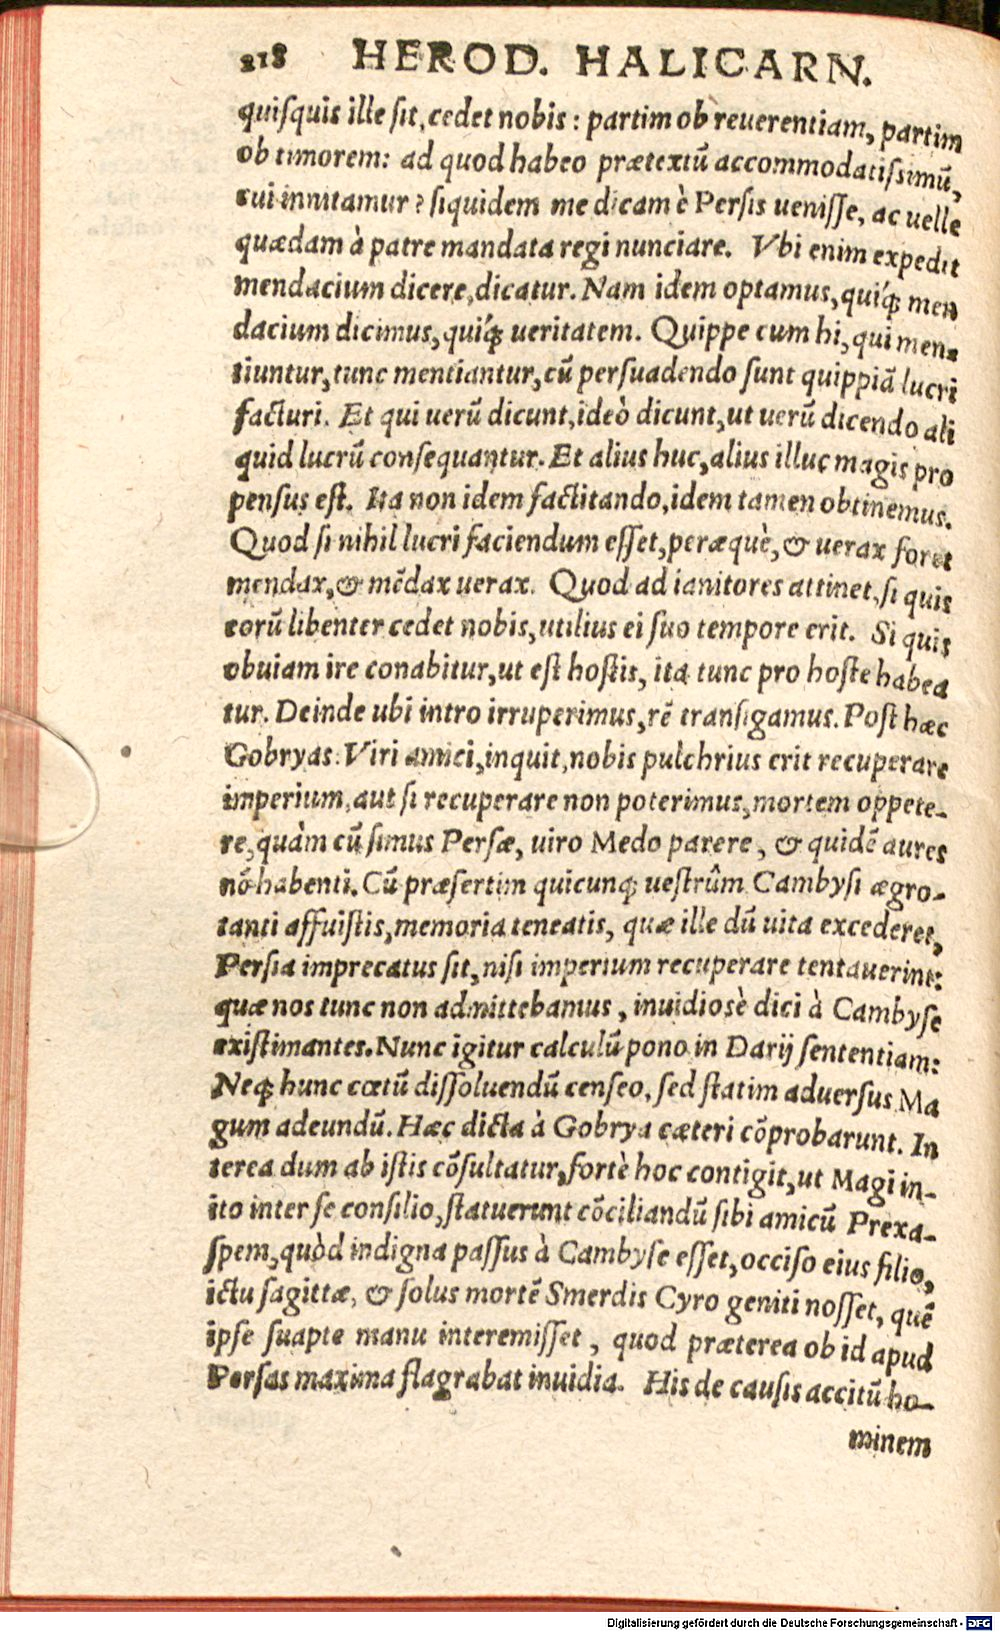 218 HEROD. HALICARN.
quiſquis ille ſit, cedet nobis: partim ob reuerentiam, partim
ob timorem: ad quod habeo prætextũ accommodatiſsimũ,
cui innitamur? ſiquidem me dicam è Perſis ueniſſe, ac uelle
quædam à patre mandata regi nunciare. Vbi enim expedit
mendacium dicere, dicatur. Nam idem optamus, quiq́; men
dacium dicimus, quiq́; ueritatem. Quippe cum hi, qui men-
tiuntur, tunc mentiantur, cũ perſuadendo ſunt quippiã lucri
facturi. Et qui uerũ dicunt, ideò dicunt, ut uerũ dicendo ali
quid lucrũ conſequantur. Et alius huc, alius illuc magis pro
penſus eſt. Ita non idem factitando, idem tamen obtinemus.
Quod ſi nihil lucri faciendum eſſet, peræquè, & uerax foret
mendax, & mẽdax uerax. Quod ad ianitores attinet, ſi quis
eorũ libenter cedet nobis, utilius ei ſuo tempore erit. Si quis
obuiam ire conabitur, ut eſt hoſtis, ita tunc pro hoſte habea
tur. Deinde ubi intro irruperimus, rẽ tranſigamus. Poſt hæc
Gobryas: Viri amici, inquit, nobis pulchrius erit recuperare
imperium, aut ſi recuperare non poterimus, mortem oppete-
re, quàm cũ ſimus Perſæ, uiro Medo parere, & quidẽ aures
nõ habenti. Cũ præſertim quicunq; ueſtrûm Cambyſi ægro-
tanti affuiſtis, memoria teneatis, quæ ille dũ uita excederet,
Perſia imprecatus ſit, niſi imperium recuperare tentauerint:
quæ nos tunc non admittebamus, inuidioſè dici à Cambyſe
exiſtimantes. Nunc igitur calculũ pono in Darij ſententiam:
Neq; hunc cœtũ diſſoluendũ cenſeo, ſed ſtatim aduerſus Ma
gum adeundũ. Hæc dicta à Gobrya cæteri cõprobarunt. In
terea dum ab iſtis cõſultatur, fortè hoc contigit, ut Magi in-
ito inter ſe conſilio, ſtatuerunt cõciliandũ ſibi amicũ Prexa-
ſpem, quòd indigna paſſus à Cambyſe eſſet, occiſo eius filio,
ictu ſagittæ, & ſolus mortẽ Smerdis Cyro geniti noſſet, quẽ
ipſe ſuapte manu interemiſſet, quod præterea ob id apud
Perſas maxima flagrabat inuidia. His de cauſis accitũ ho-
minem
Digitalisierung gefördert durch die Deutsche Forschungsgemeinschaft - DFG